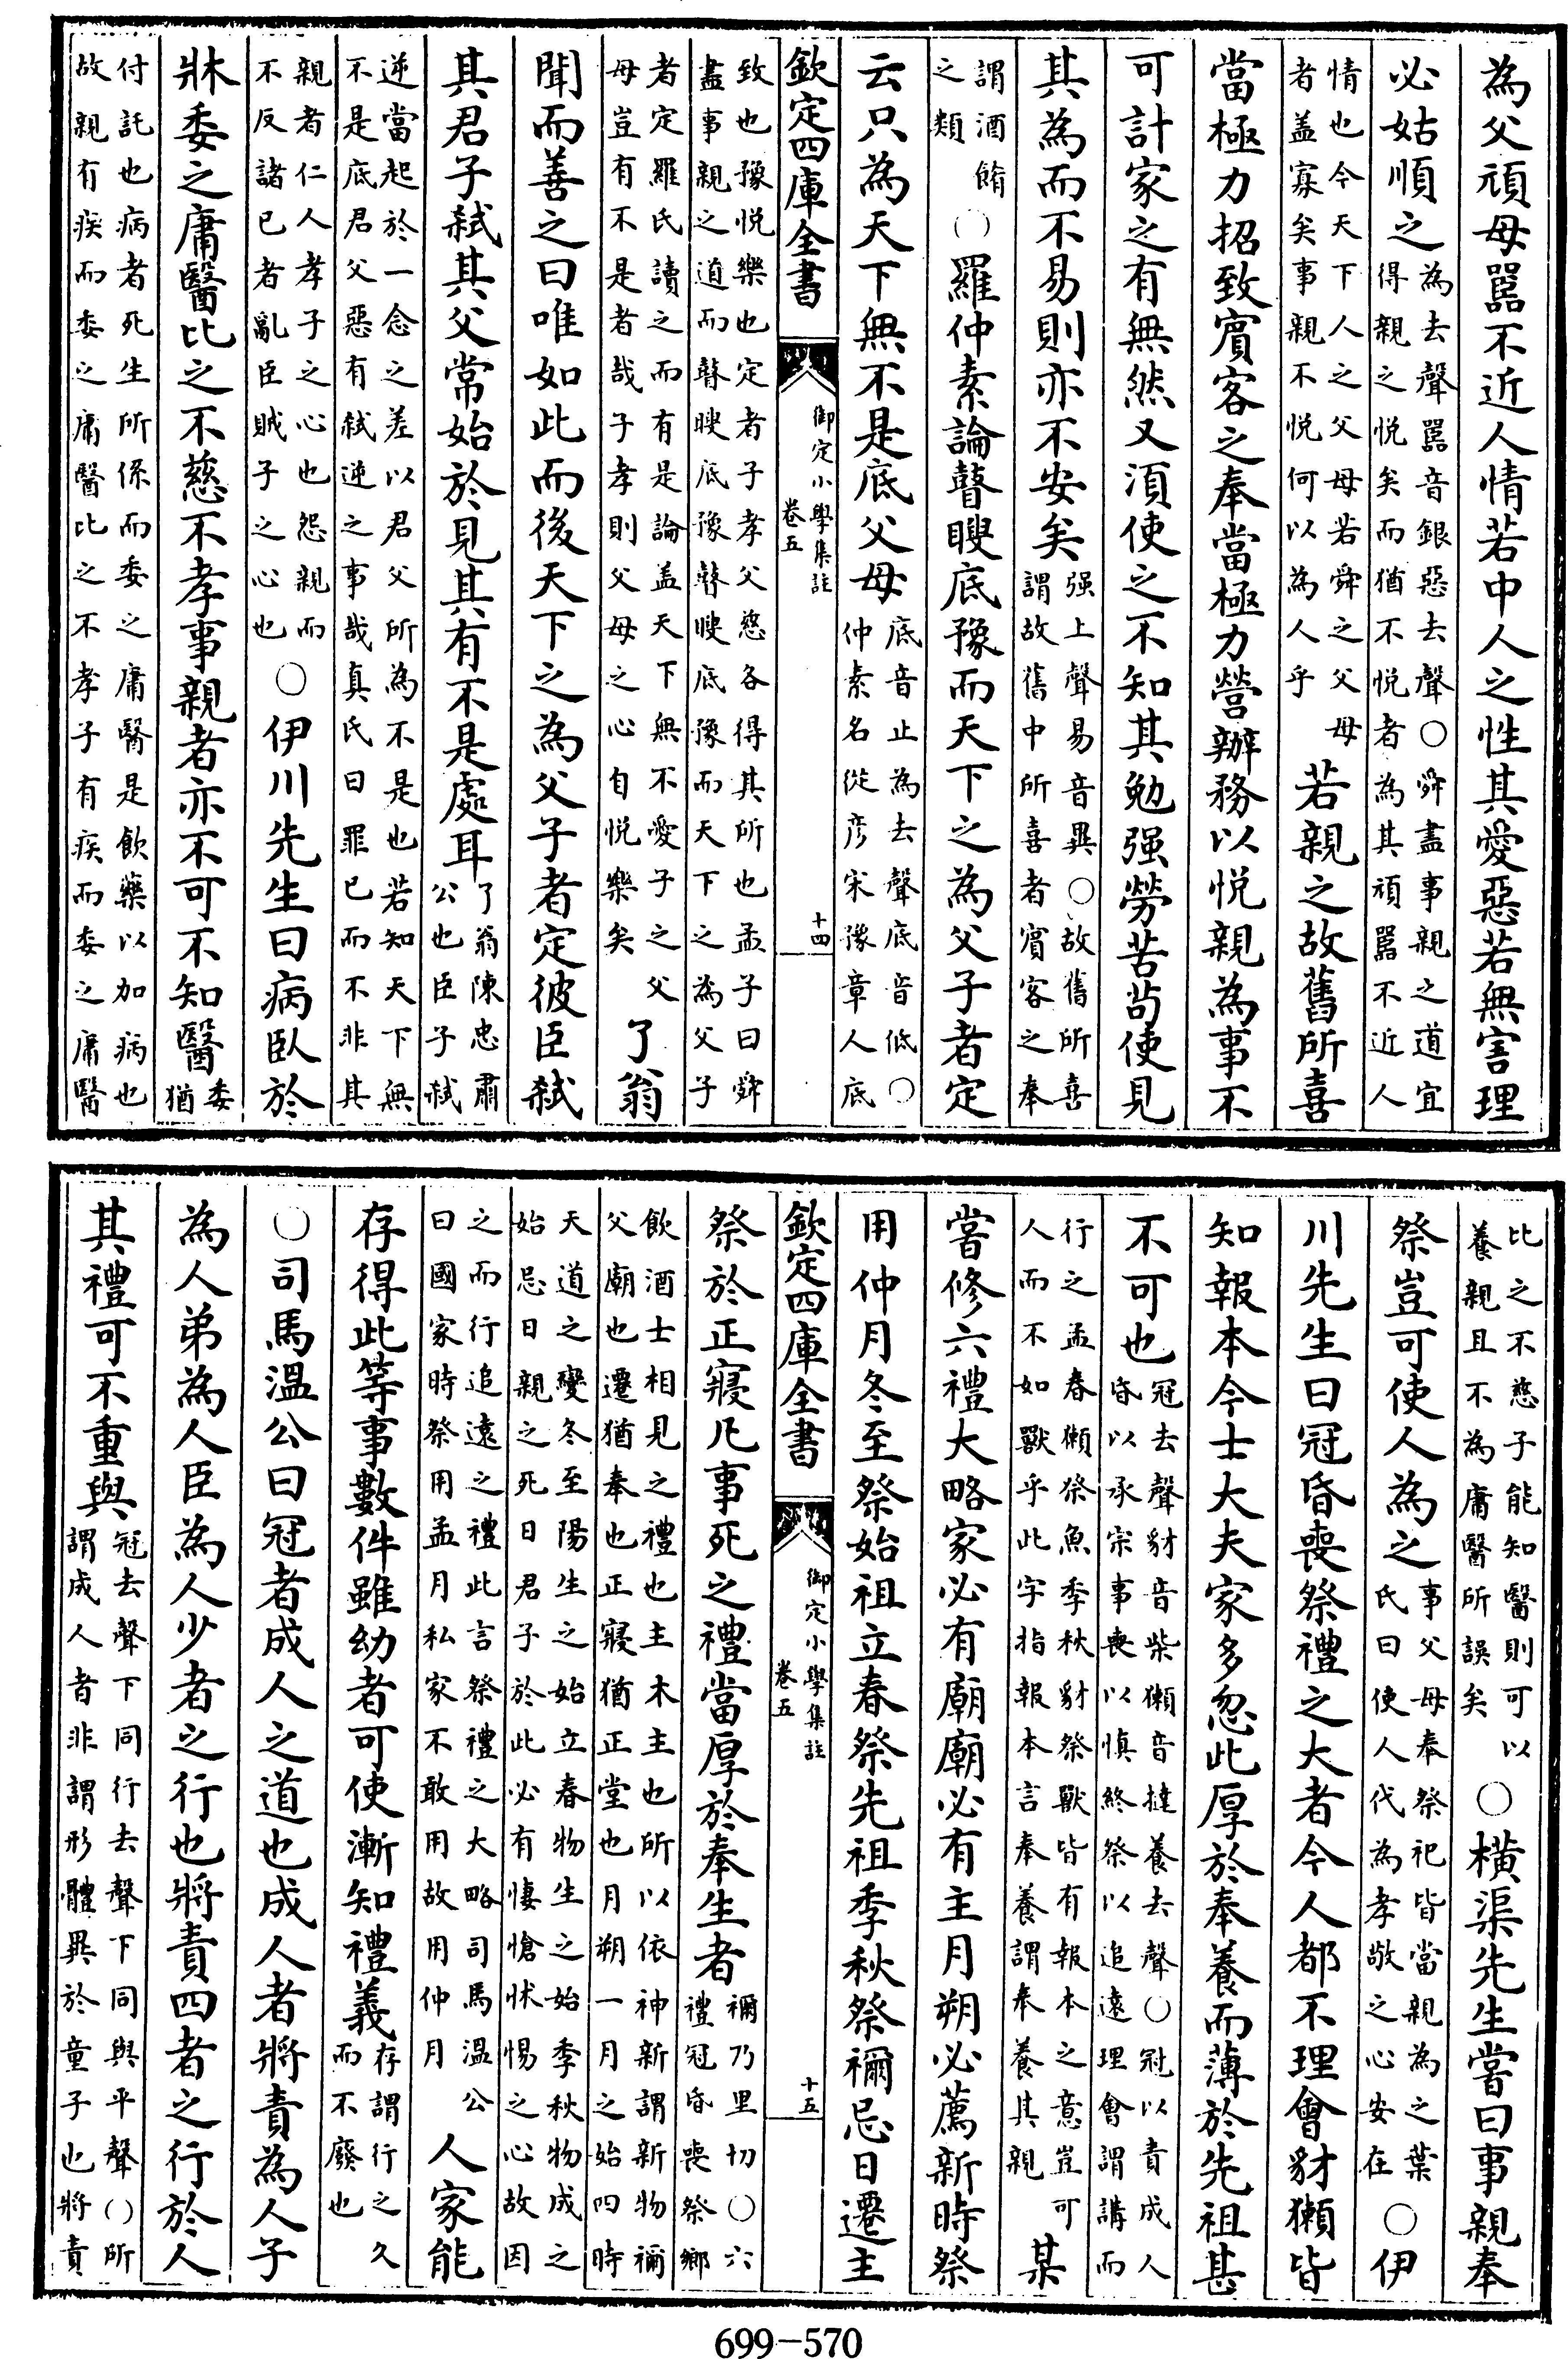 為父頑母嚚不近人情若中人之性其愛惡若無害理
必姑順之為去聲嚚音銀惡去聲○舜盡事親之道宜
得親之悦矣而猶不悦者為其頑嚚不近人
情也今天下人之父母若舜之父母
者盖寡矣事親不悦何以為人乎若親之故舊所喜
當極力招致賓客之奉當極力營辦務以悦親為事不
可計家之有無然又須使之不知其勉强勞苦茍使見
其為而不易則亦不安矣强上聲易音異○故舊所喜
謂故舊中所喜者賓客之奉
謂酒餚
之類○羅仲素論瞽瞍底豫而天下之為父子者定
云只為天下無不是底父母底音止為去聲底音低○
仲素名從彦宋豫章人底
欽定四庫全書
御定小學集註
卷五
十四
致也豫悦樂也定者子孝父慈各得其所也孟子曰舜
盡事親之道而瞽瞍底豫瞽瞍底豫而天下之為父子
者定羅氏讀之而有是論盖天下無不愛子之父
母豈有不是者哉子孝則父母之心自悦樂矣了翁
聞而善之曰唯如此而後天下之為父子者定彼臣弑
其君子弑其父常始於見其有不是處耳了翁陳忠肅
公也臣子弑
逆當起於一念之差以君父所為不是也若知天下無
不是底君父惡有弑逆之事哉真氏曰罪已而不非其
親者仁人孝子之心也怨親而
不反諸已者亂臣賊子之心也○伊川先生曰病臥於
牀委之庸醫比之不慈不孝事親者亦不可不知醫委
猶
付託也病者死生所係而委之庸醫是飲藥以加病也
故親有疾而委之庸醫比之不孝子有疾而委之庸醫
比之不慈子能知醫則可以
養親且不為庸醫所誤矣○横渠先生嘗曰事親奉
祭豈可使人為之事父母奉祭祀皆當親為之葉
氏曰使人代為孝敬之心安在○伊
川先生曰冠昏喪祭禮之大者今人都不理會豺獺皆
知報本今士大夫家多忽此厚於奉養而薄於先祖甚
不可也冠去聲豺音柴獺音撻養去聲○冠以責成人
昏以承宗事喪以慎終祭以追遠理會謂講而
行之孟春獺祭魚季秋豺祭獸皆有報本之意豈可
人而不如獸乎此字指報本言奉養謂奉養其親某
嘗修六禮大略家必有廟廟必有主月朔必薦新時祭
用仲月冬至祭始祖立春祭先祖季秋祭禰忌日遷主
欽定四庫全書
御定小學集註
卷五
十五
祭於正寢凡事死之禮當厚於奉生者禰乃里切○六
禮冠昏喪祭鄉
飲酒士相見之禮也主木主也所以依神新謂新物禰
父廟也遷猶奉也正寢猶正堂也月朔一月之始四時
天道之變冬至陽生之始立春物生之始季秋物成之
始忌日親之死日君子於此必有悽愴怵惕之心故因
之而行追遠之禮此言祭禮之大略司馬溫公
曰國家時祭用孟月私家不敢用故用仲月人家能
存得此等事數件雖幼者可使漸知禮義存謂行之久
而不廢也
○司馬溫公曰冠者成人之道也成人者將責為人子
為人弟為人臣為人少者之行也將責四者之行於人
其禮可不重與冠去聲下同行去聲下同與平聲○所
謂成人者非謂形體異於童子也將責
699-570